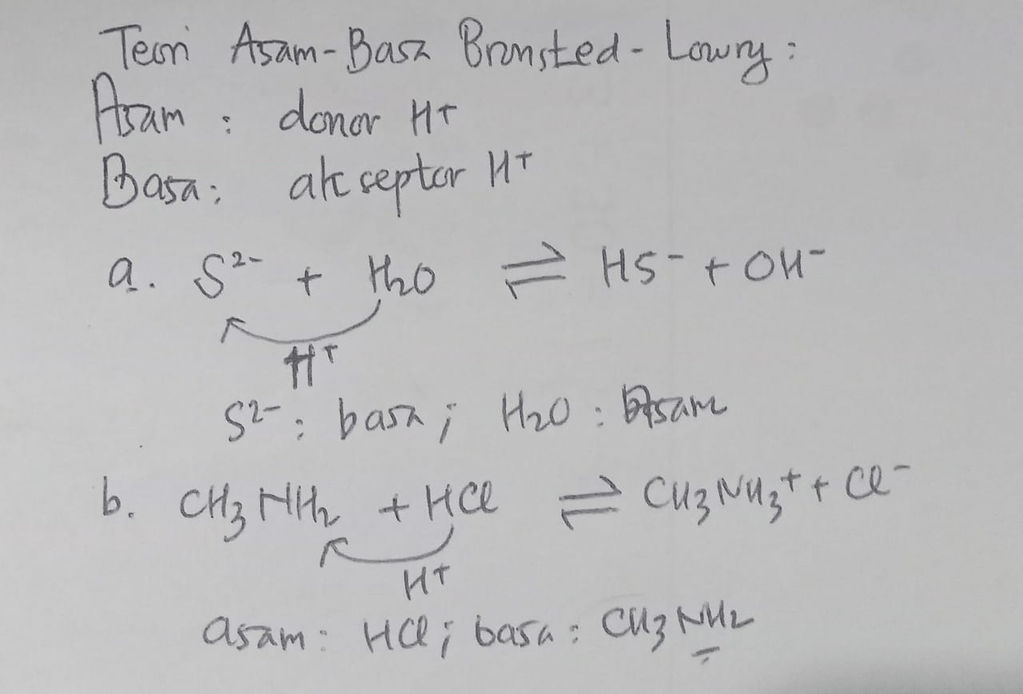 Teori Asam-Basa Bronsted-Lowry:
Asam : donor H+
Basa: akseptor H+
a. S²⁻ + H₂O ⇌ HS⁻ + OH⁻
H⁺
S²⁻: basa; H₂O : Asam
b. CH₃NH₂ + HCl ⇌ CH₃NH₃⁺ + Cl⁻
H⁺
asam: HCl; basa: CH₃NH₂